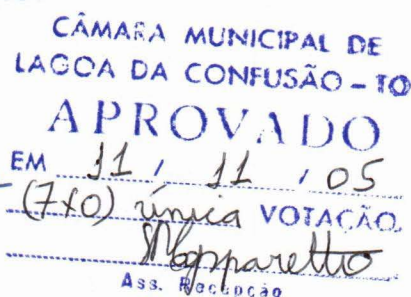 CÂMARA MUNICIPAL DE
LAGOA DA CONFUSÃO - TO
APROVADO
EM 11 / 11 / 05
(7x0) única VOTAÇÃO
Ass. Recepção